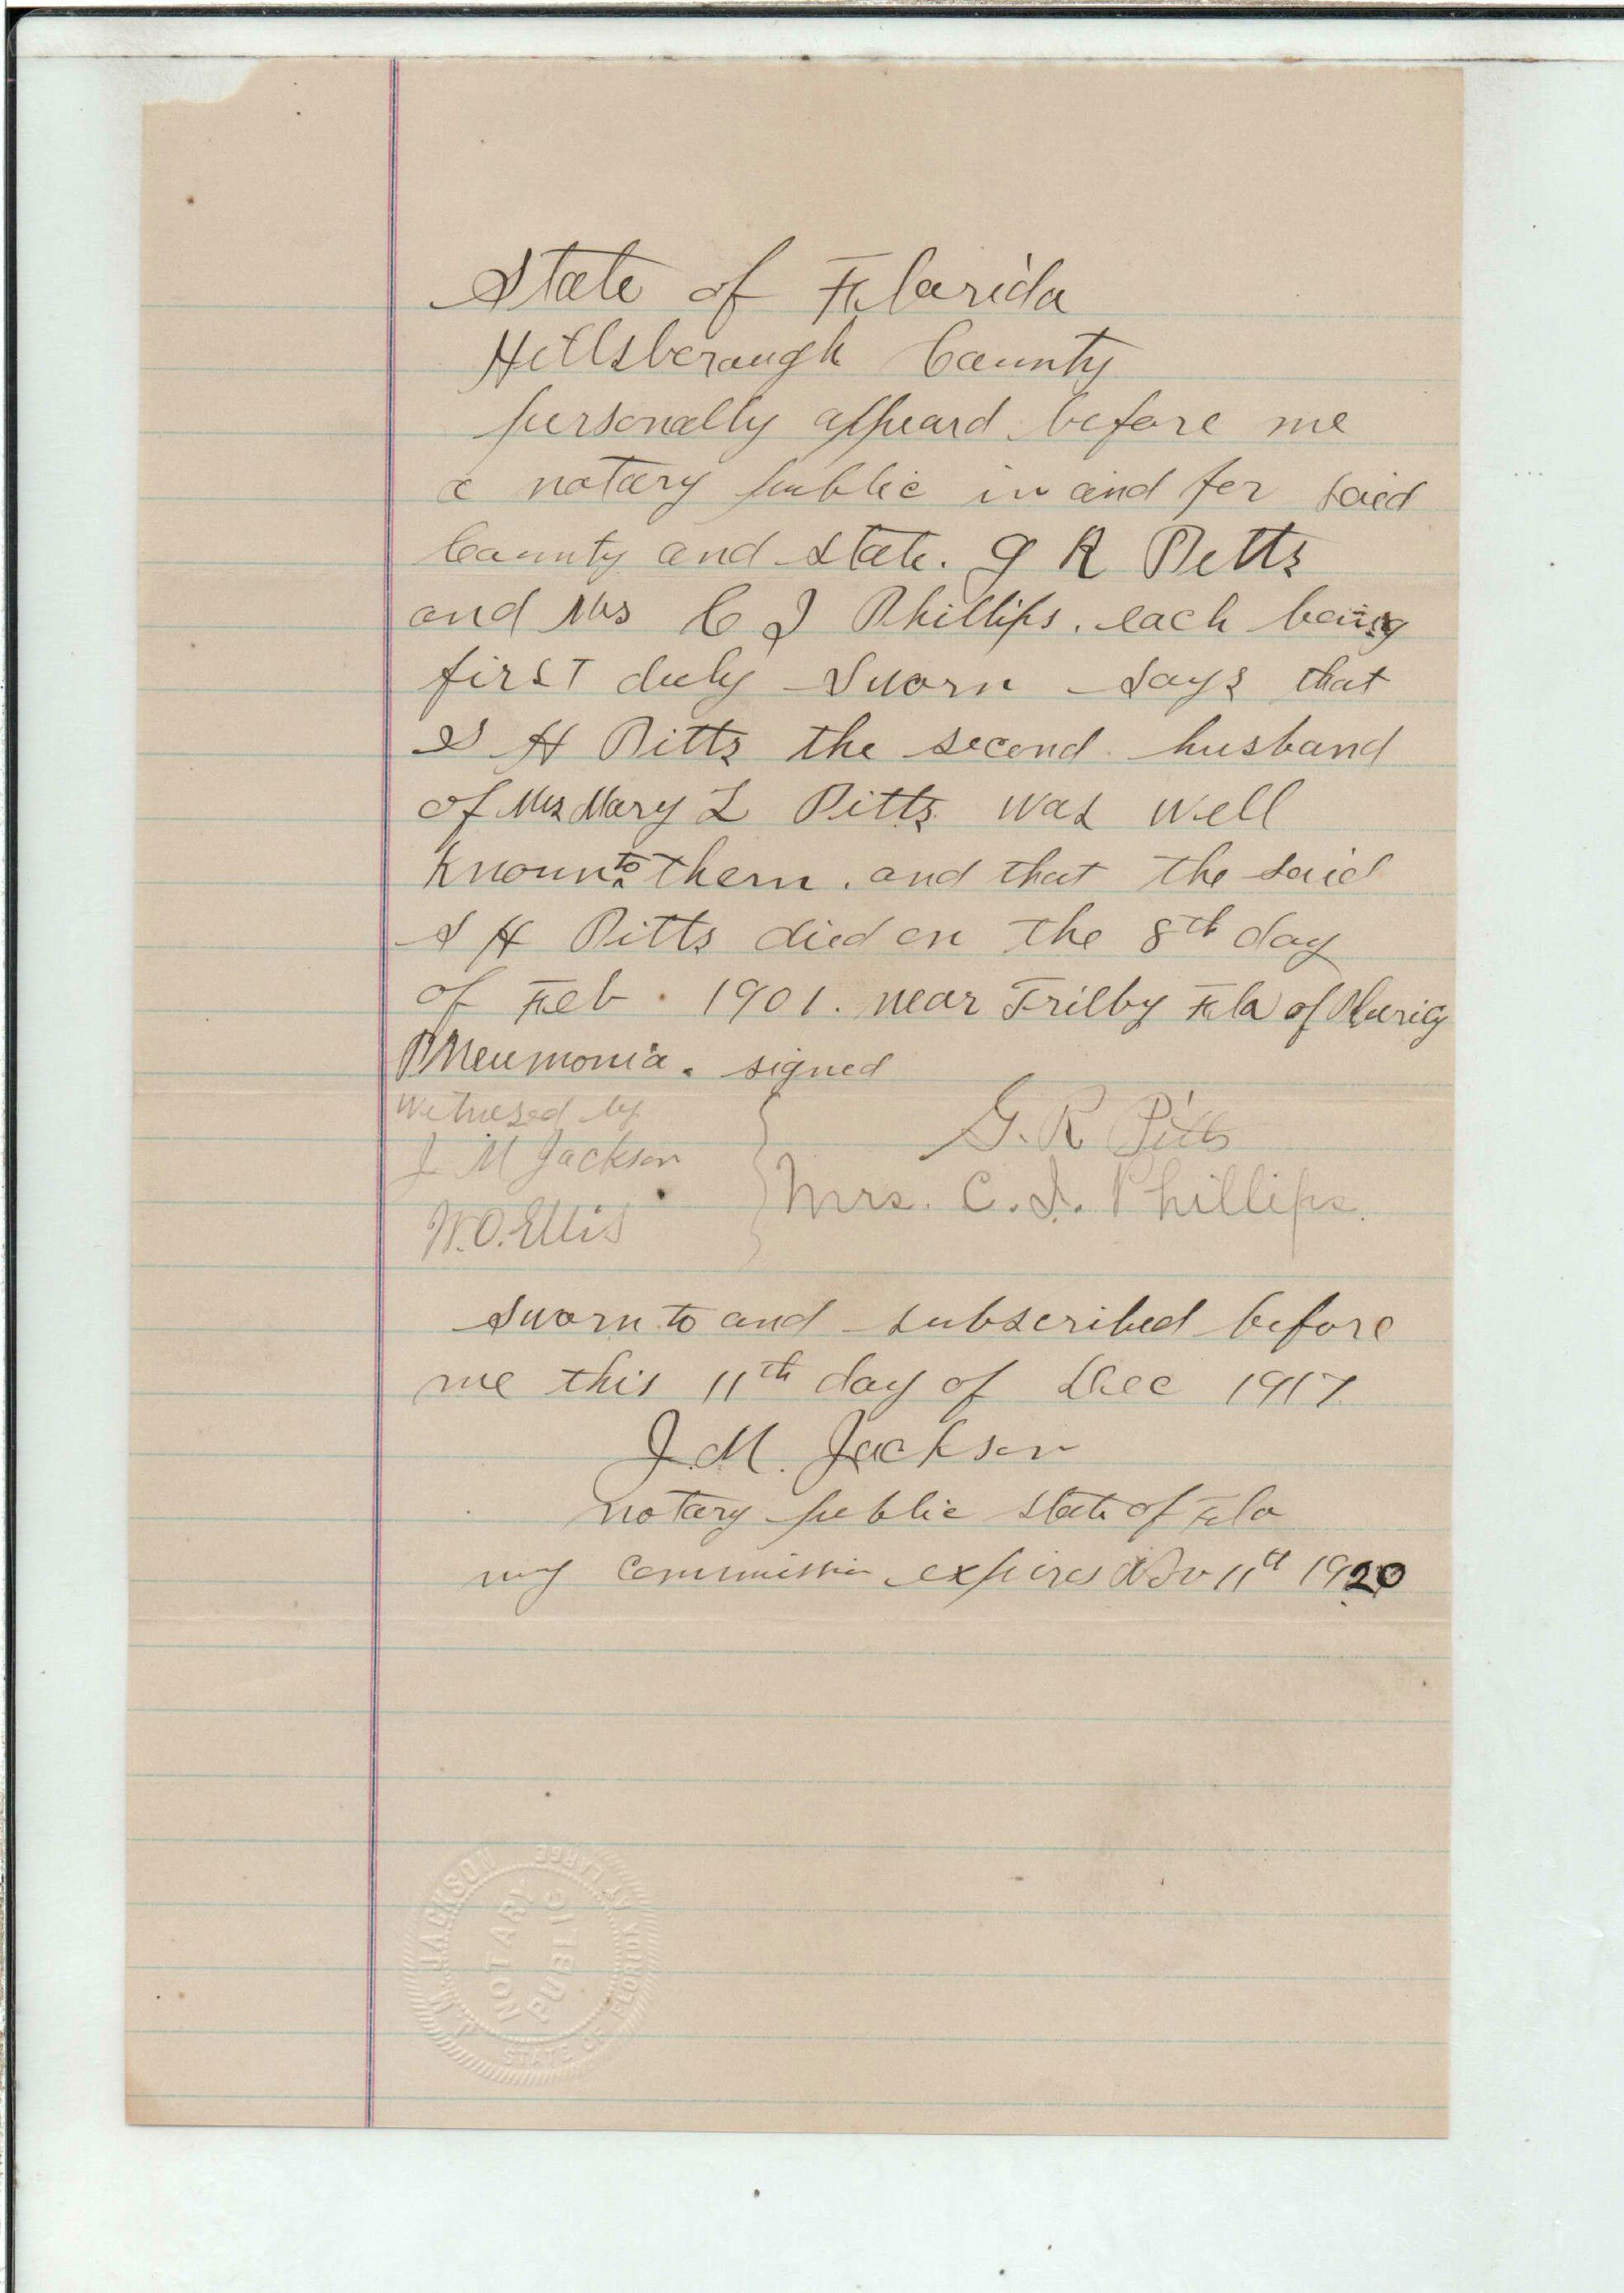 State of Florida
Hillsborough County
personally appeard before me
a notary public in and for said
County and state. G R Pitts
and Mrs C J Phillips. each being
first duly sworn says that
S H Pitts the second husband
of Mrs Mary L Pitts was well
known to them. and that the said
S H Pitts died on the 8th day
of Feb. 1901. near Trilby Fla of
Pneumonia. signed
Witnesed by
J M Jackson
W.O. Ellis
G. R Pitts
Mrs. C. J. Phillips.
Sworn to and subscribed before
me this 11th day of Dec 1917.
J. M. Jackson
notary public state of Fla
my commission expires Nov 11th 1920
J. M. JACKSON
NOTARY
PUBLIC
STATE OF FLORIDA AT LARGE